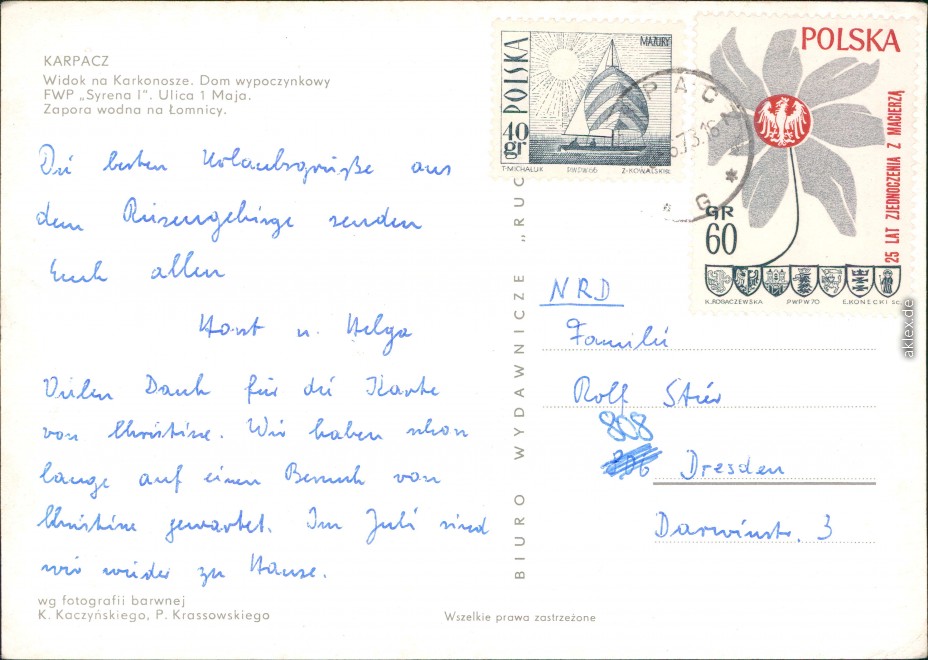 KARPACZ
Widok na Karkonosze. Dom wypoczynkowy
FWP „Syrena I”. Ulica 1 Maja.
Zapora wodna na Łomnicy.
Die besten Urlaubsgrüße aus
dem Riesengebirge senden
Euch allen
Horst u. Helga
Vielen Dank für die Karte
von Christine. Wir haben schon
lange auf einen Besuch von
Christine gewartet. Im Juli sind
wir wieder zu Hause.
wg fotografii barwnej
K. Kaczyńskiego, P. Krassowskiego
Wszelkie prawa zastrzeżone
BIURO WYDAWNICZE „RUC
POLSKA
MAZURY
40 gr
T·MICHALUK PWPW·66 Z·KOWALSKI
PACZ
73.16
G
POLSKA
25 LAT ZJEDNOCZENIA Z MACIERZĄ
GR
60
K.ROGACZEWSKA PWPW 70 E.KONECKI SC.
NRD
Familie
Rolf Stier
808
806 Dresden
Darwinstr. 3
aklex.de